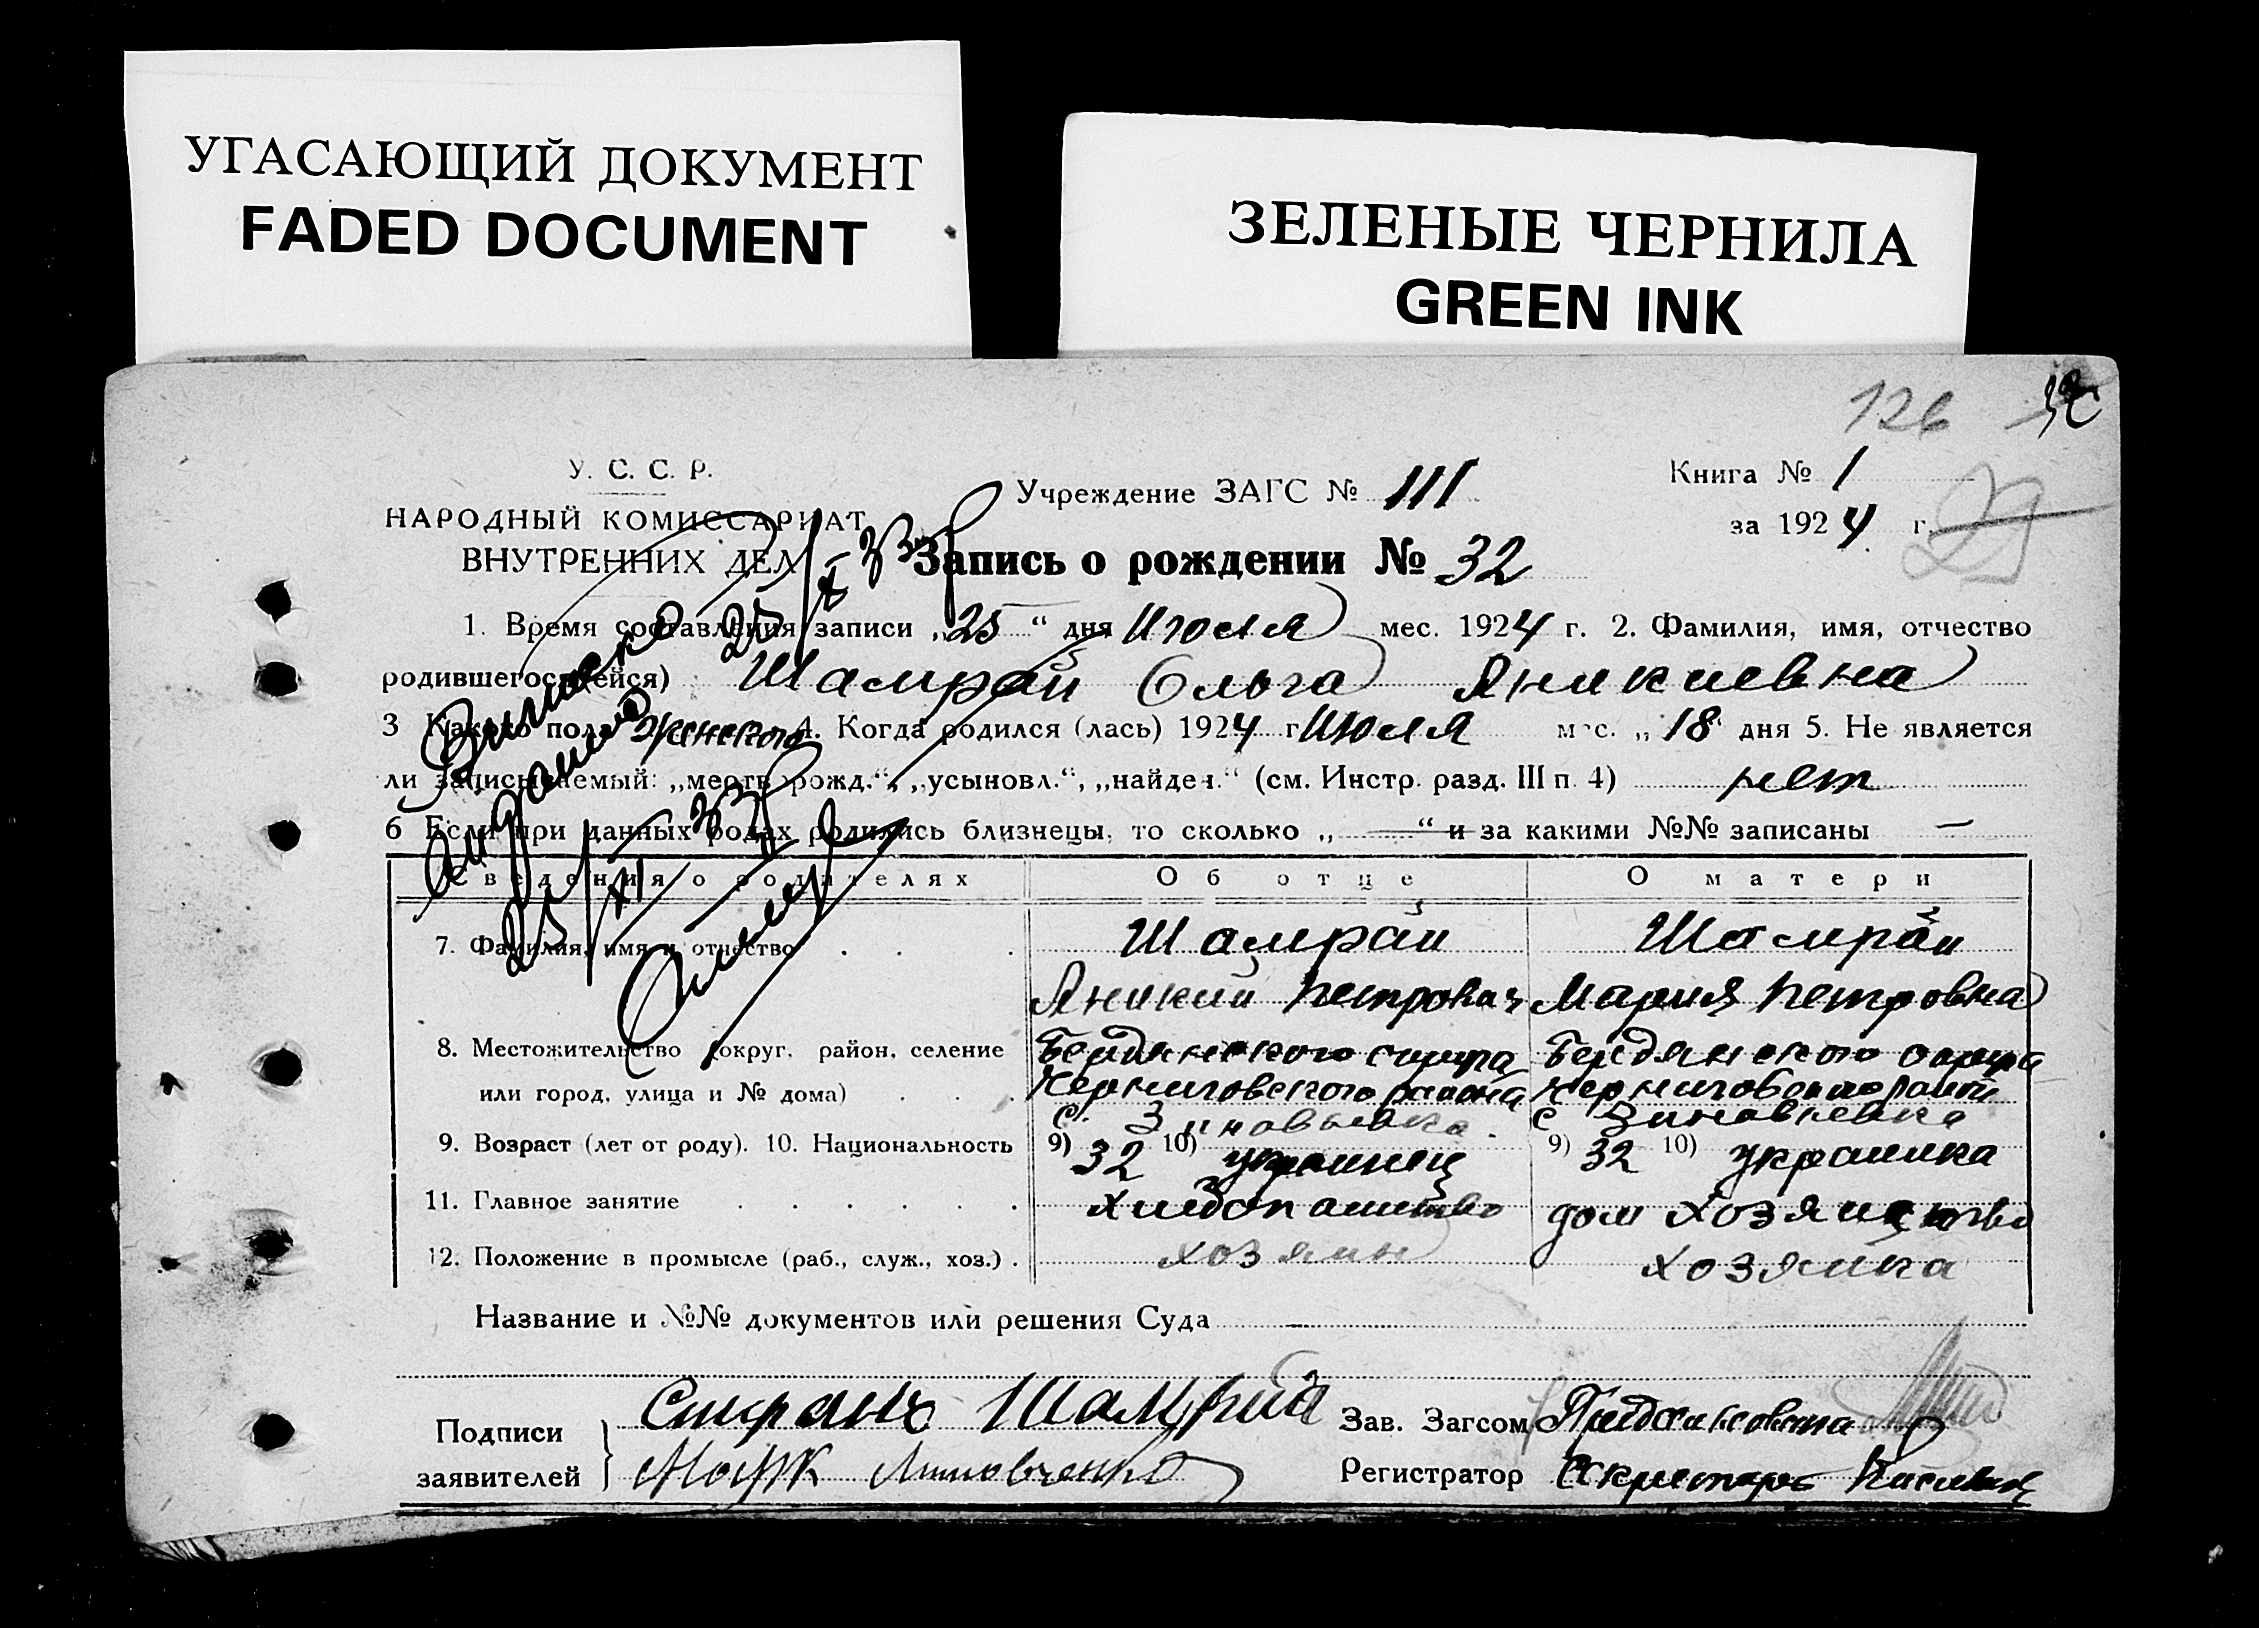 УГАСАЮЩИЙ ДОКУМЕНТ
FADED DOCUMENT
ЗЕЛЕНЫЕ ЧЕРНИЛА
GREEN INK
126 32
У. С. С. Р.
НАРОДНЫЙ КОМИССАРИАТ
ВНУТРЕННИХ ДЕЛ
Учреждение ЗАГС № 111
Книга № 1
за 1924 г.
29
Запись о рождении № 32
1. Время составления записи „25“ дня Июля мес. 1924 г. 2. Фамилия, имя, отчество
родившегося(ейся) Шамрай Ольга Яникиевна
3 Какого пола женского 4. Когда родился (лась) 1924 г Июля мес. „18“ дня 5. Не является
ли записываемый: „мертворожд.“, „усыновл.“, „найден.“ (см. Инстр. разд. III п. 4) нет
6 Если при данных родах родились близнецы, то сколько „ — “ и за какими №№ записаны —
Сведения о родителях Об отце О матери
7. Фамилия, имя и отчество Шамрай Шамрай
Яникий Петрович Мария Петровна
8. Местожительство (округ, район, селение Бердянского округа Бердянского округа
или город, улица и № дома) Черниговского района Черниговского район
с. Зиновьевка с Зиновьевка
9. Возраст (лет от роду). 10. Национальность 9) 32 10) украинец 9) 32 10) украинка
11. Главное занятие хлебопашество дом хозяйство
12. Положение в промысле (раб., служ., хоз.) хозяин хозяйка
Название и №№ документов или решения Суда —
Подписи
заявителей
Шамрай
Марк
Зав. Загсом
Регистратор Секретарь